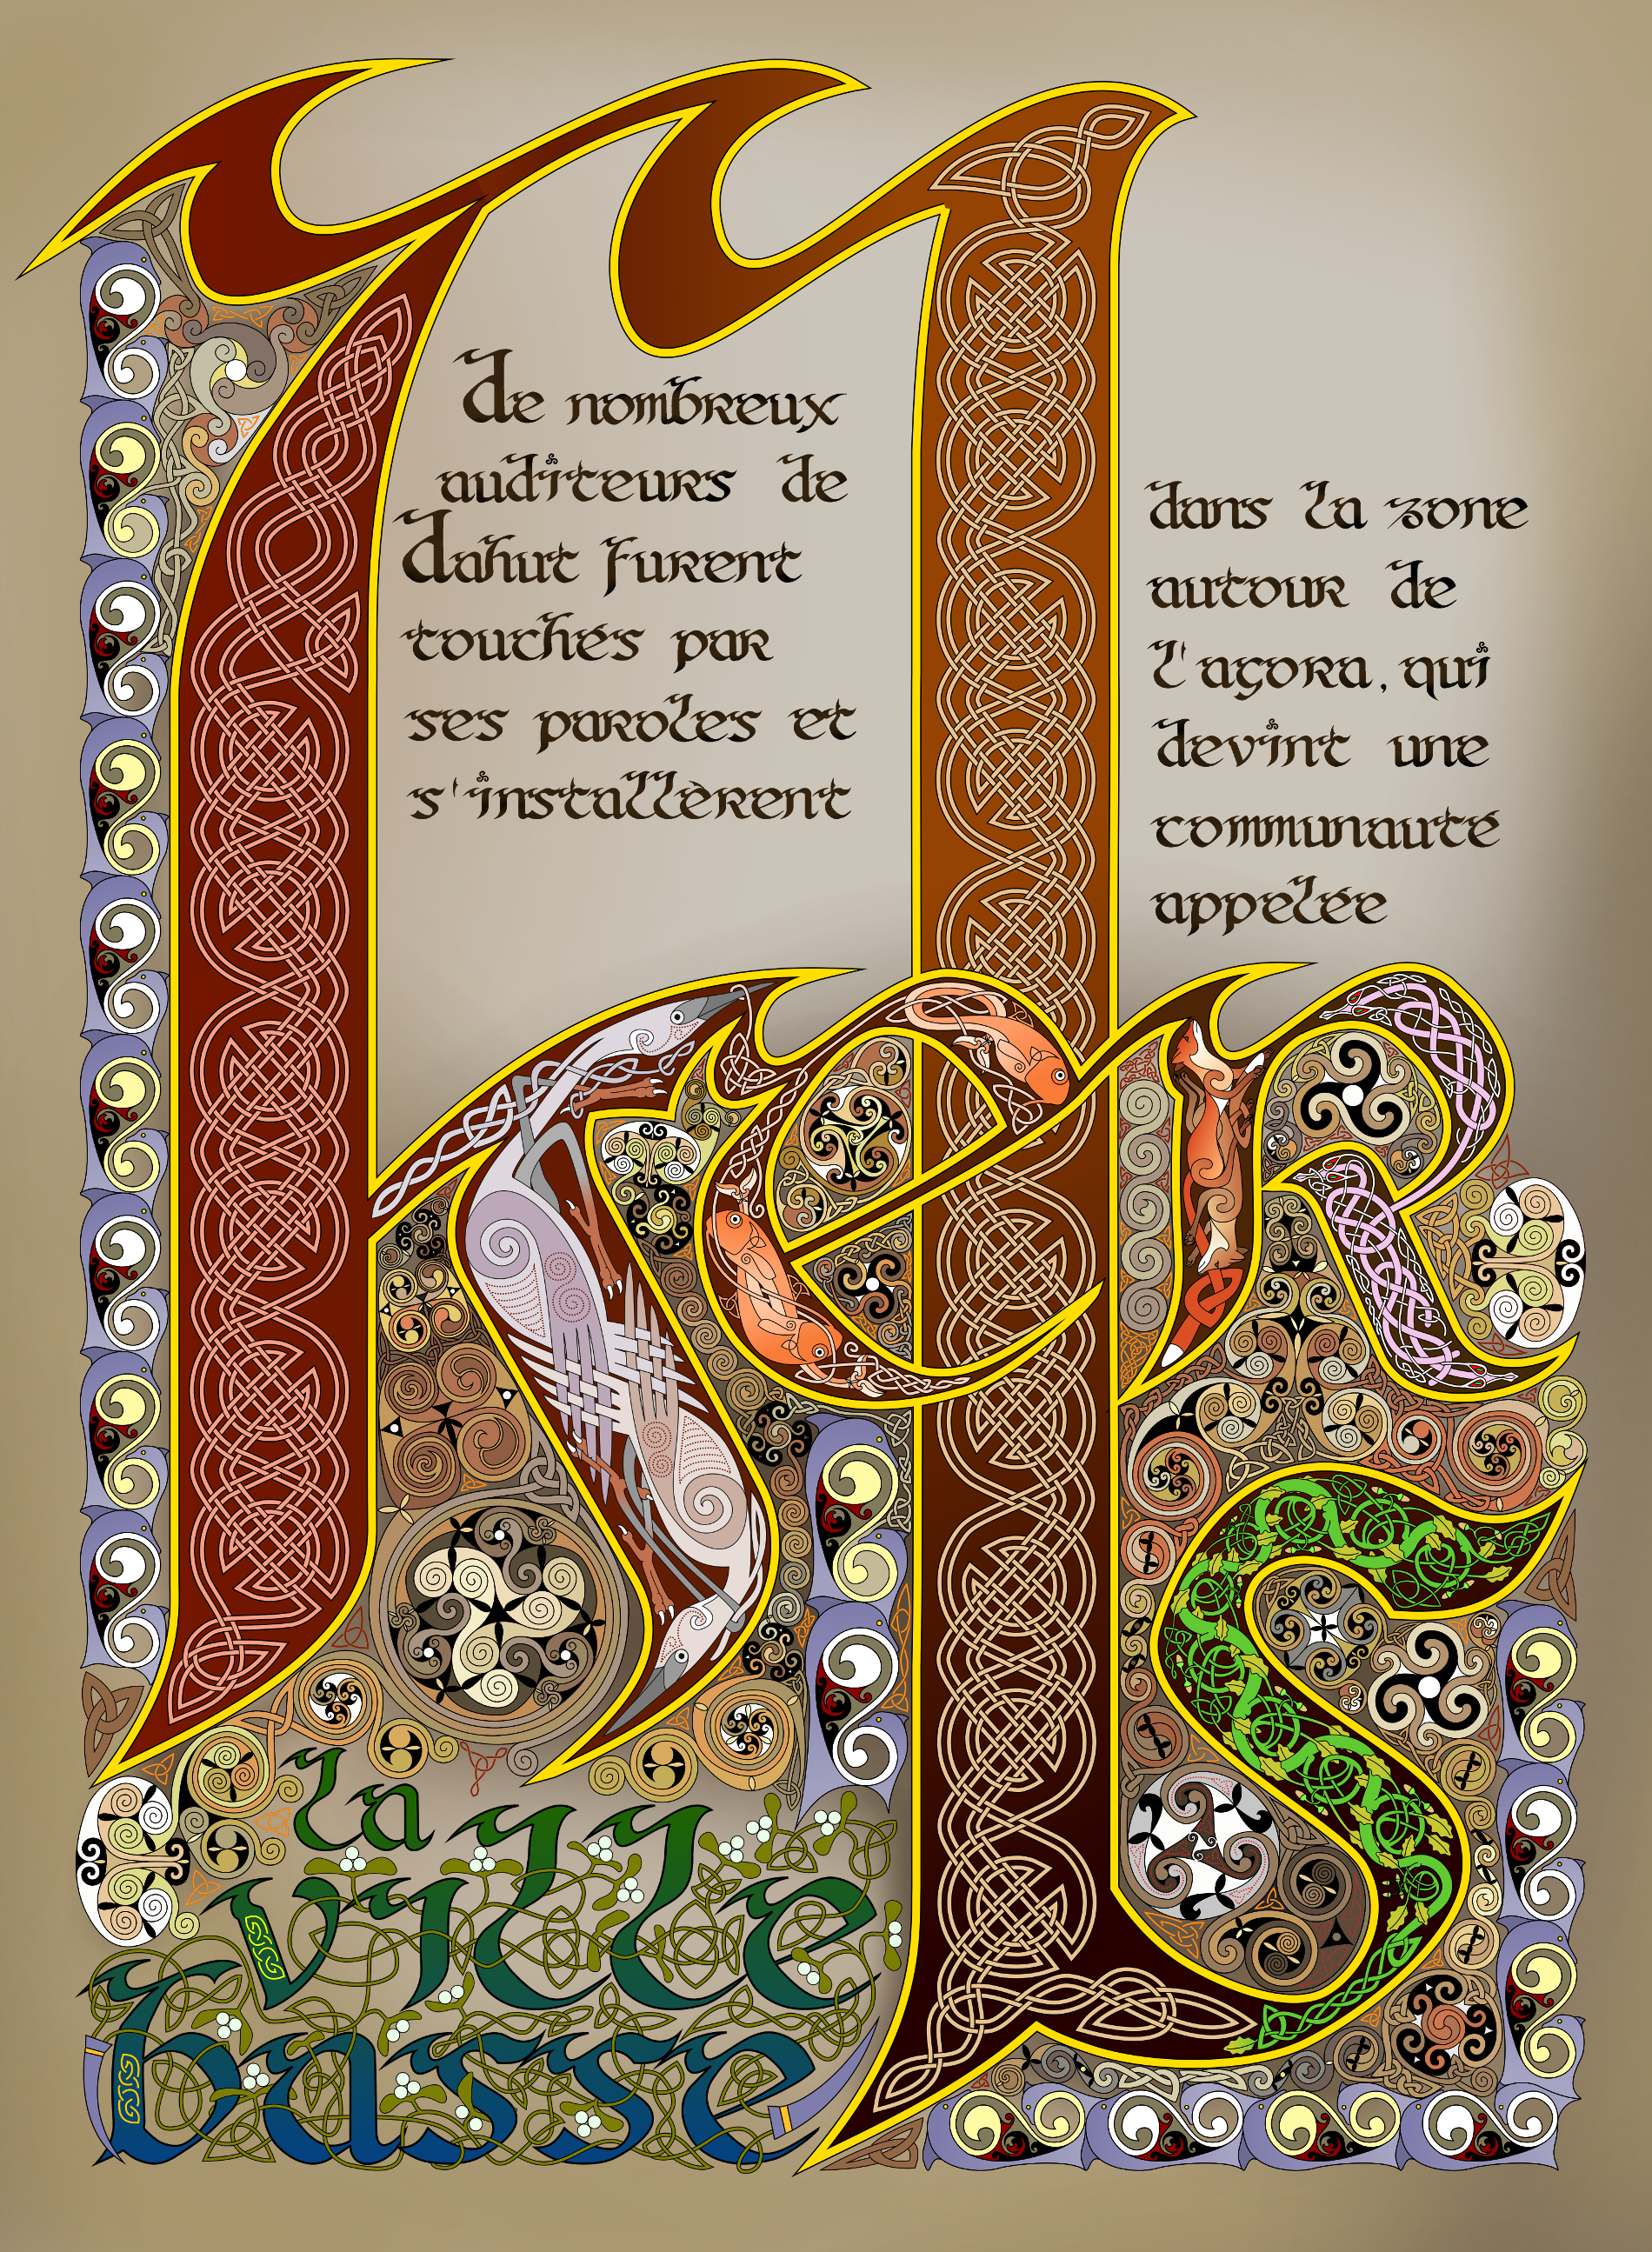 de nombreux
auditeurs de
dahut furent
touchés par
ses paroles et
s'installèrent
dans la zone
autour de
l'agora, qui
devint une
communauté
appelée
Ker
Is
la
ville
basse